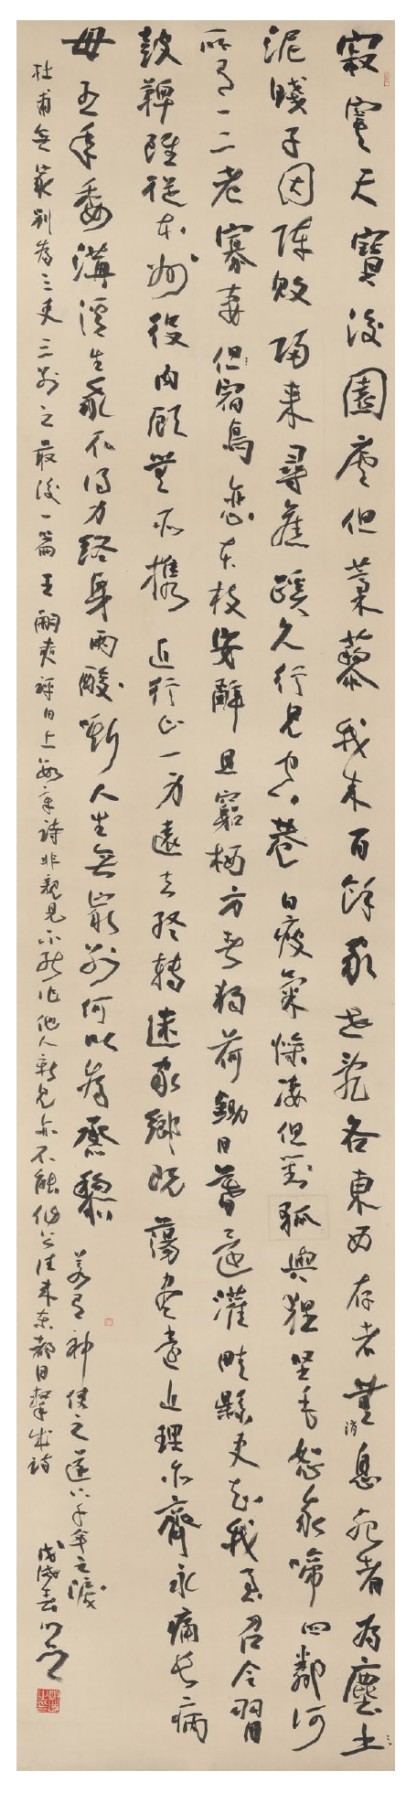 寂寞天寶後園廬但蒿藜我里百餘家世亂各東西存者無消息死者為塵土
泥賤子因陣敗歸來尋舊蹊久行見空巷日瘦氣慘淒但對狐與狸竪毛怒我啼四鄰何
所有一二老寡妻但宿鳥戀本枝安辭且窮棲方春獨荷鋤日暮還灌畦縣吏知我至召令習
鼓鞞雖從本州役內顧無所攜近行止一身遠去終轉迷家鄉既蕩盡遠近理亦齊永痛長病
母五年委溝谿生我不得力終身兩酸嘶人生無家別何以為蒸黎
杜甫無家別為三吏三別之最後一篇王嗣奭評曰上數章詩非親見不能作他人雖見亦不能作公往來東都目擊成詩
若有神使之遂下千年之淚
戊戌春